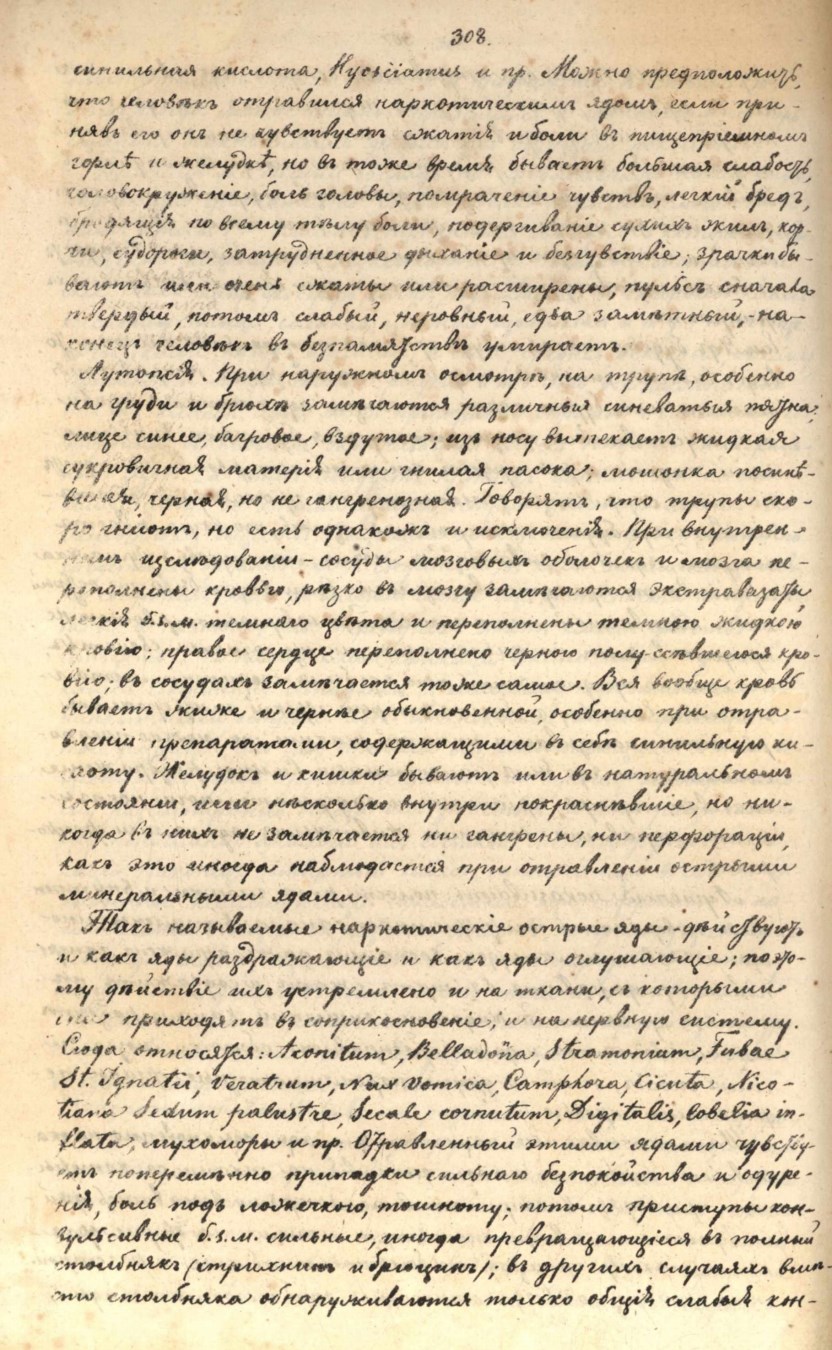 308.
синильная кислота, Hyosciamus и пр. Можно предположить,
что человѣкъ отравился наркотическимъ ядомъ, если при-
нявъ его онъ не чувствуетъ сжатія и боли въ пищепріемномъ
горлѣ и желудкѣ, но въ тоже время бываетъ большая слабость,
головокруженіе, боль головы, помраченіе чувствъ, легкій бредъ,
бродящія по всему тѣлу боли, подергиваніе сухихъ жилъ, кор-
чи, судороги, затрудненное дыханіе и безчувствіе; зрачки бы-
ваютъ или очень сжаты или расширены, пульсъ сначала
твердый, потомъ слабый, неровный, едва замѣтный, - на-
конецъ человѣкъ въ безпамятствѣ умираетъ.
Аутопсія. При наружномъ осмотрѣ, на трупѣ, особенно
на груди и брюхѣ замѣчаются различныя синеватыя пятна,
лице синее, багровое, вздутое; изъ носу вытекаетъ жидкая
сукровичная матерія или гнилая пасока; мошонка посинѣ-
вшая, черная, но не гангренозная. Говорятъ, что трупы ско-
ро гніютъ, но есть однакожъ и исключенія. При внутрен-
немъ изслѣдованіи - сосуды мозговыхъ оболочекъ и мозга пе-
реполнены кровью, рѣзко въ мозгу замѣчаются экстравазаты,
легкія б. и. м. темнаго цвѣта и переполнены темною жидкою
кровію; правое сердце переполнено черною полу-ссѣвшеюся кро-
вію; въ сосудахъ замѣчается тоже самое. Вся вообще кровь
бываетъ жиже и чернѣе обыкновенной, особенно при отра-
вленіи препаратами, содержащими въ себѣ синильную ки-
слоту. Желудокъ и кишки бываютъ или въ натуральномъ
состояніи, или нѣсколько внутри покраснѣвшіе, но ни-
когда въ нихъ не замѣчается ни гангрены, ни перфораціи,
какъ это иногда наблюдается при отравленіи острыми
минеральными ядами.
Такъ называемые наркотическіе острые яды - дѣйствуютъ
и какъ яды раздражающіе и какъ яды оглушающіе; поэто-
му дѣйствіе ихъ устремлено и на ткани, съ которыми
они приходятъ въ соприкосновеніе, и на нервную систему.
Сюда относятся: Aconitum, Belladona, Stramonium, Fabae
St. Ignatii, Veratrum, Nux vomica, Camphora, Cicuta, Nico-
tiana Sedum palustre, Secale cornutum, Digitalis, Lobelia in-
flata, мухоморы и пр. Отравленный этими ядами чувству-
етъ поперемѣнно припадки сильнаго безпокойства и одуре-
нія, боль подъ ложечкою, тошноту; потомъ приступы кон-
вульсивные б. и. м. сильные, иногда превращающіеся въ полный
столбнякъ (стрихнинъ и бруцинъ); въ другихъ случаяхъ вмѣ-
сто столбняка обнаруживаются только общія слабыя кон-